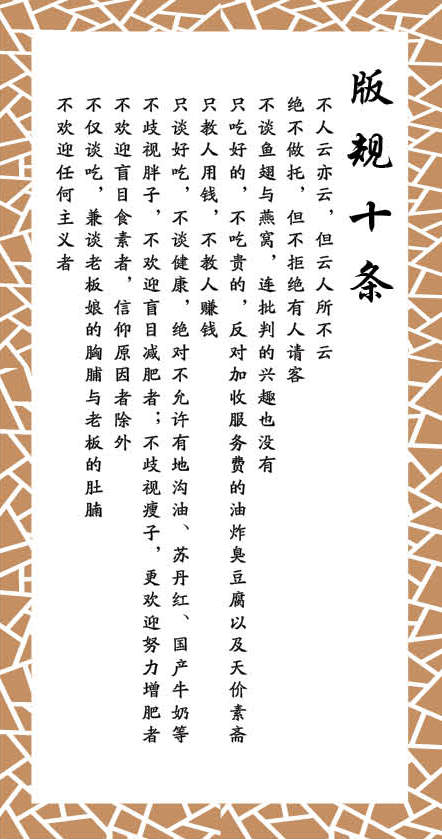 版规十条
不人云亦云，但云人所不云
绝不做托，但不拒绝有人请客
不谈鱼翅与燕窝，连批判的兴趣也没有
只吃好的，不吃贵的，反对加收服务费的油炸臭豆腐以及天价素斋
只教人用钱，不教人赚钱
只谈好吃，不谈健康，绝对不允许有地沟油、苏丹红、国产牛奶等
不歧视胖子，不欢迎盲目减肥者；不歧视瘦子，更欢迎努力增肥者
不欢迎盲目食素者，信仰原因者除外
不仅谈吃，兼谈老板娘的胸脯与老板的肚腩
不欢迎任何主义者